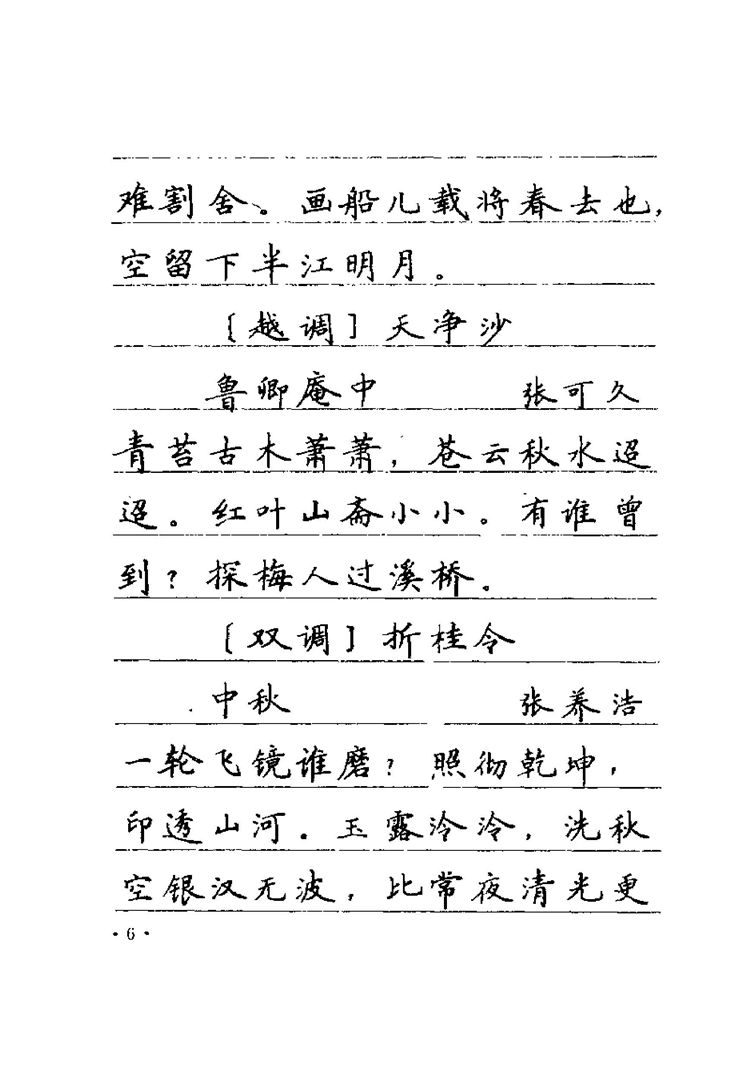 难割舍。画船儿载将春去也，
空留下半江明月。
［越调］天净沙
鲁卿庵中 张可久
青苔古木萧萧，苍云秋水迢
迢。红叶山斋小小。有谁曾
到？探梅人过溪桥。
［双调］折桂令
中秋 张养浩
一轮飞镜谁磨？照彻乾坤，
印透山河。玉露泠泠，洗秋
空银汉无波，比常夜清光更
·6·